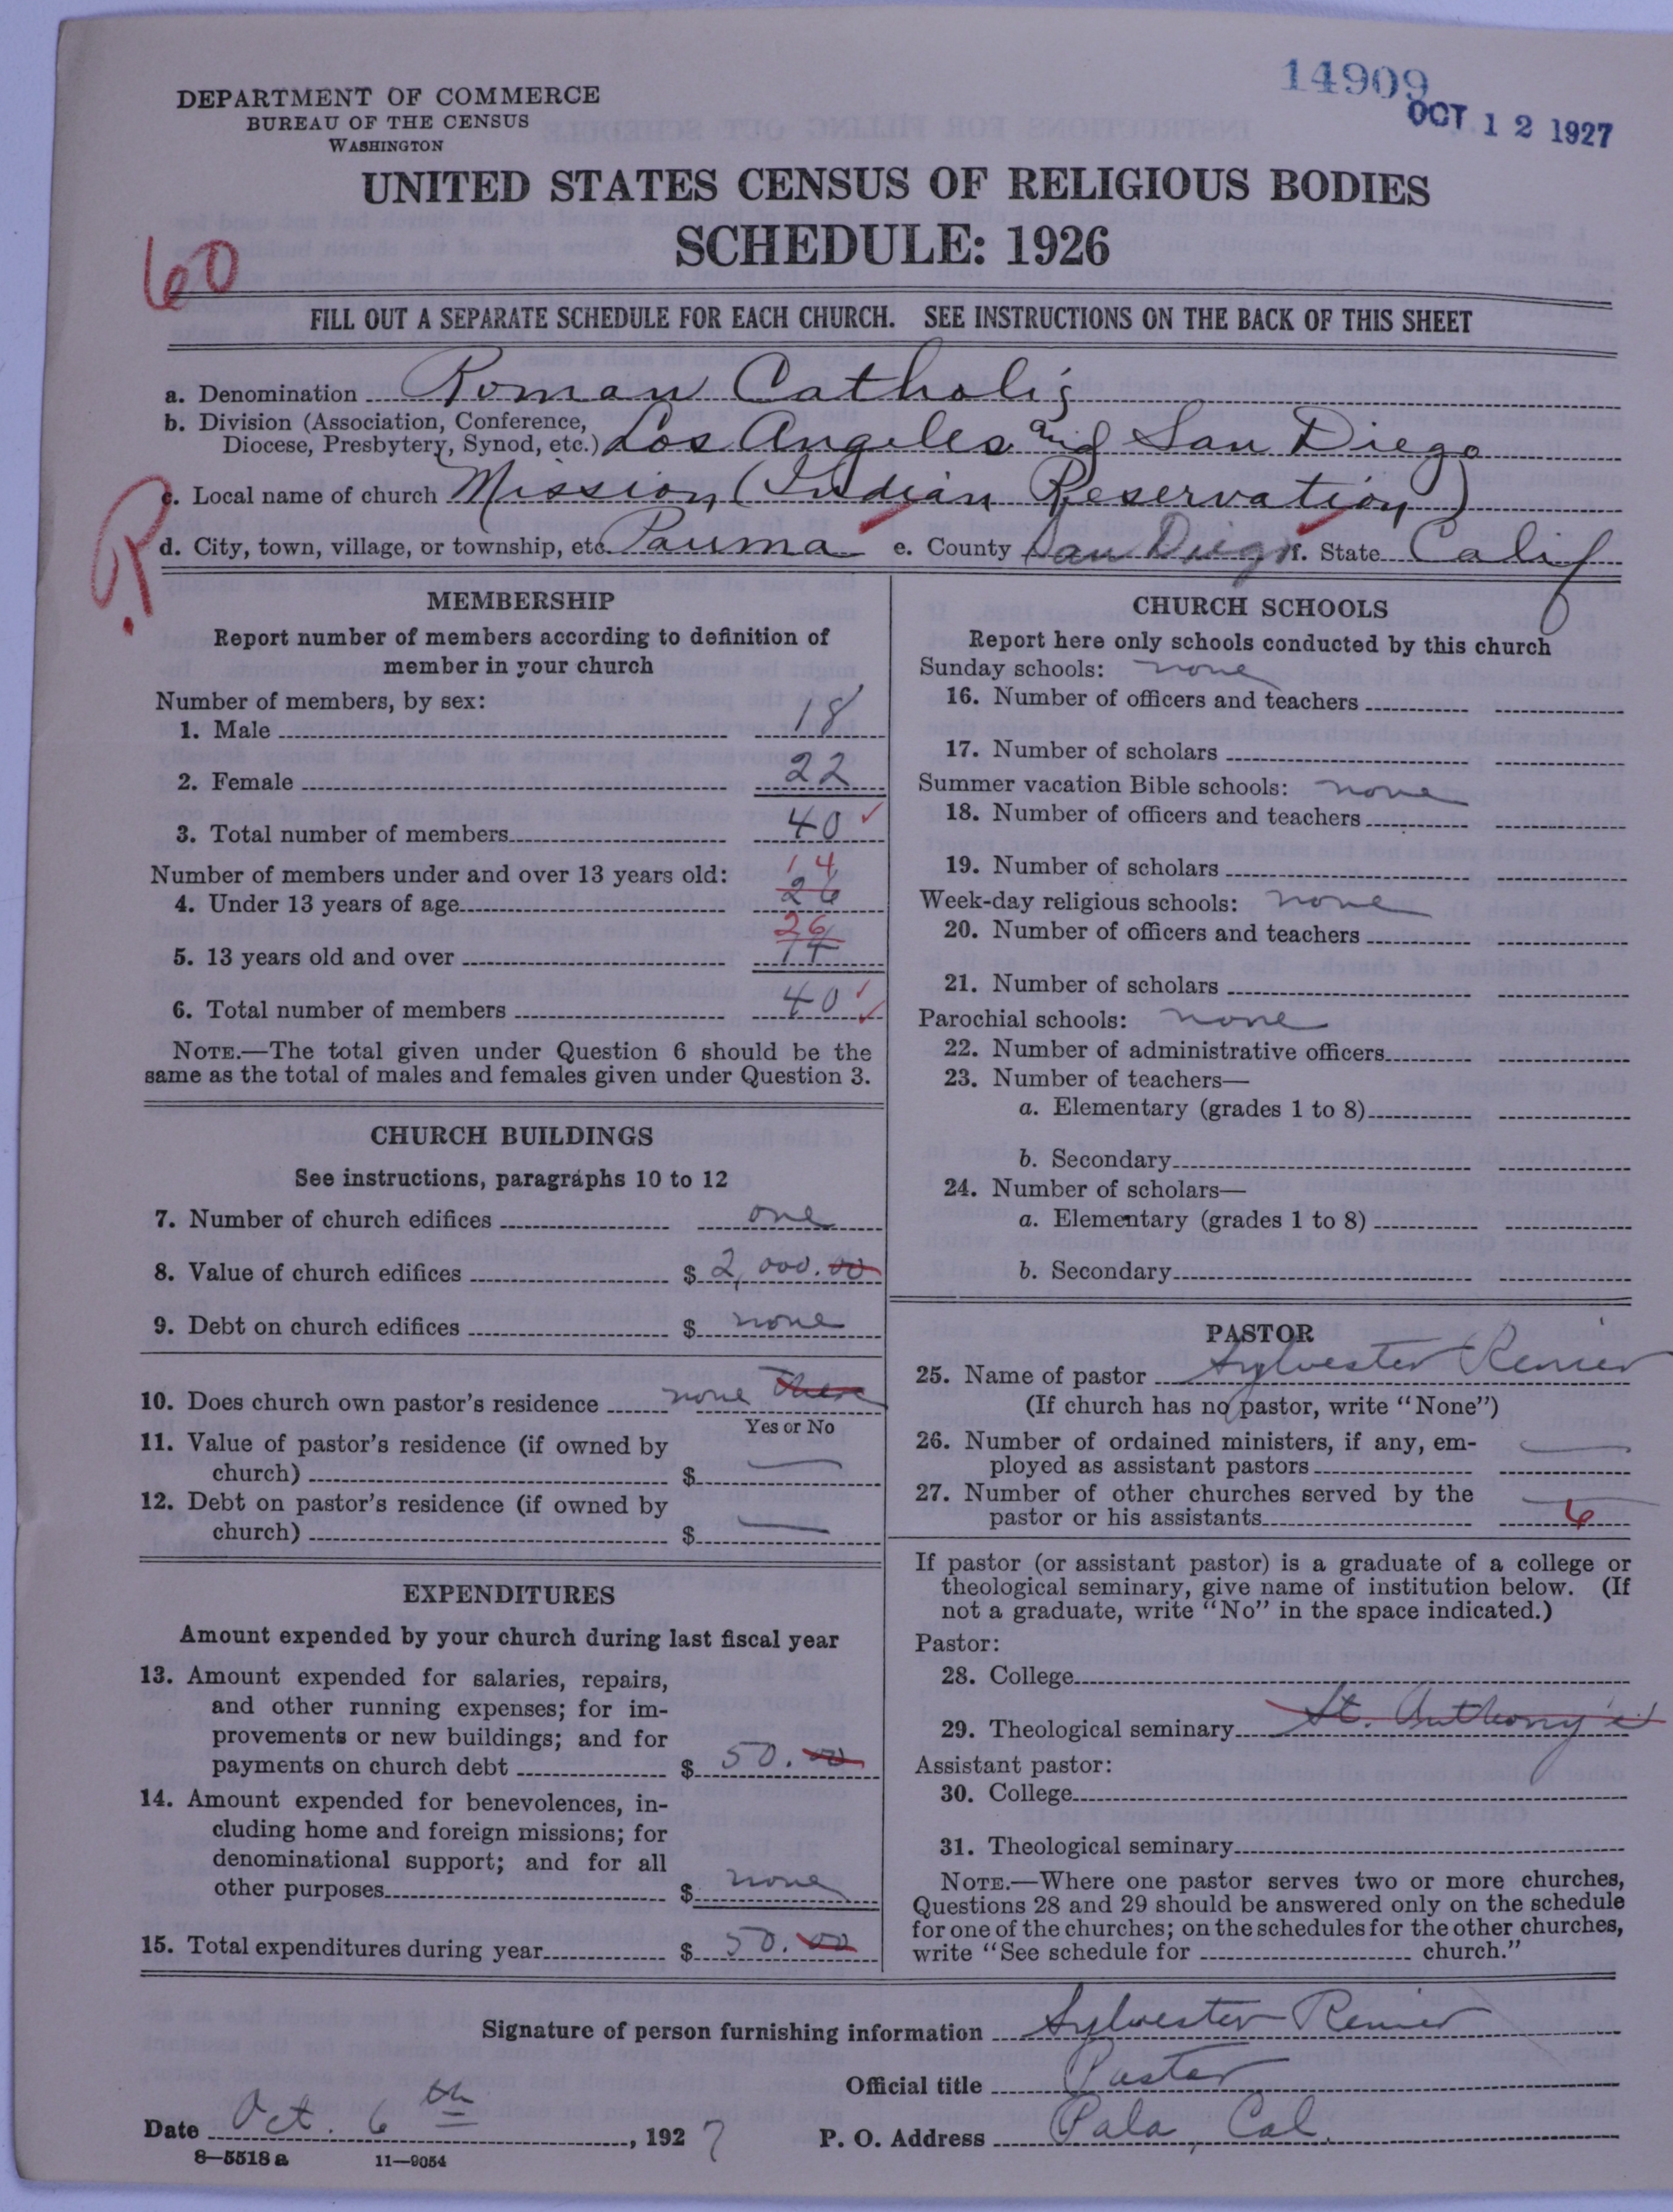 14909
OCT 12 1927
DEPARTMENT OF COMMERCE
BUREAU OF THE CENSUS
WASHINGTON
UNITED STATES CENSUS OF RELIGIOUS BODIES
SCHEDULE: 1926
60
FILL OUT A SEPARATE SCHEDULE FOR EACH CHURCH. SEE INSTRUCTIONS ON THE BACK OF THIS SHEET
a. Denomination Roman Catholic
b. Division (Association, Conference,
Diocese, Presbytery, Synod, etc.) Los Angeles and San Diego
R
c. Local name of church Mission (Indian Reservation)
d. City, town, village, or township, etc. Pauma e. County San Diego f. State Calif
MEMBERSHIP
Report number of members according to definition of
member in your church
Number of members, by sex:
1. Male 18
2. Female 22
3. Total number of members 40
Number of members under and over 13 years old:
14
4. Under 13 years of age 26
26
5. 13 years old and over 14
6. Total number of members 40
NOTE.—The total given under Question 6 should be the
same as the total of males and females given under Question 3.
CHURCH BUILDINGS
See instructions, paragraphs 10 to 12
7. Number of church edifices one
8. Value of church edifices $ 2,000.00
9. Debt on church edifices $ none
10. Does church own pastor's residence none there
Yes or No
11. Value of pastor's residence (if owned by
church) $ —
12. Debt on pastor's residence (if owned by
church) $ —
EXPENDITURES
Amount expended by your church during last fiscal year
13. Amount expended for salaries, repairs,
and other running expenses; for im-
provements or new buildings; and for
payments on church debt $ 50.00
14. Amount expended for benevolences, in-
cluding home and foreign missions; for
denominational support; and for all
other purposes $ none
15. Total expenditures during year $ 50.00
CHURCH SCHOOLS
Report here only schools conducted by this church
Sunday schools: none
16. Number of officers and teachers
17. Number of scholars
Summer vacation Bible schools: none
18. Number of officers and teachers
19. Number of scholars
Week-day religious schools: none
20. Number of officers and teachers
21. Number of scholars
Parochial schools: none
22. Number of administrative officers
23. Number of teachers—
a. Elementary (grades 1 to 8)
b. Secondary
24. Number of scholars—
a. Elementary (grades 1 to 8)
b. Secondary
PASTOR
25. Name of pastor Sylvester Renier
(If church has no pastor, write "None")
26. Number of ordained ministers, if any, em-
ployed as assistant pastors —
27. Number of other churches served by the
pastor or his assistants 6
If pastor (or assistant pastor) is a graduate of a college or
theological seminary, give name of institution below. (If
not a graduate, write "No" in the space indicated.)
Pastor:
28. College
29. Theological seminary St. Anthony's
Assistant pastor:
30. College
31. Theological seminary
NOTE.—Where one pastor serves two or more churches,
Questions 28 and 29 should be answered only on the schedule
for one of the churches; on the schedules for the other churches,
write "See schedule for church."
Signature of person furnishing information Sylvester Renier
Official title Pastor
Date Oct. 6th, 1927 P. O. Address Pala, Cal.
8—5518 a 11—9054